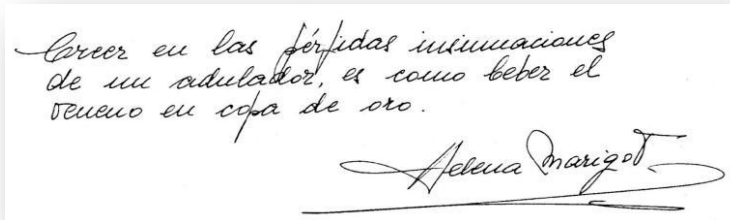 Creer en las pérfidas insinuaciones
de un adulador, es como beber el
veneno en copa de oro.
Helena Marigot